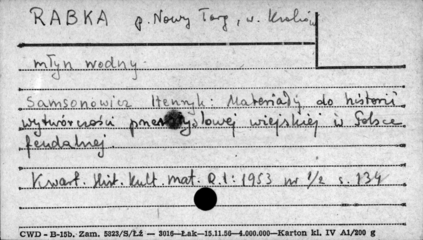 RABKA p. Nowy Targ, w. Kraków
młyn wodny.
Samsonowicz Henryk: Materiały do historii
wytwórczości przemysłowej wiejskiej w Polsce
feudalnej.
Kwart. Hist. Kult. Mat. R.1: 1953 nr 1/2 s. 134
CWD - B-15b. Zam. 5823/S/Łź — 3016—Łak—15.11.56—4.000.000—Karton kl. IV A1/200 g